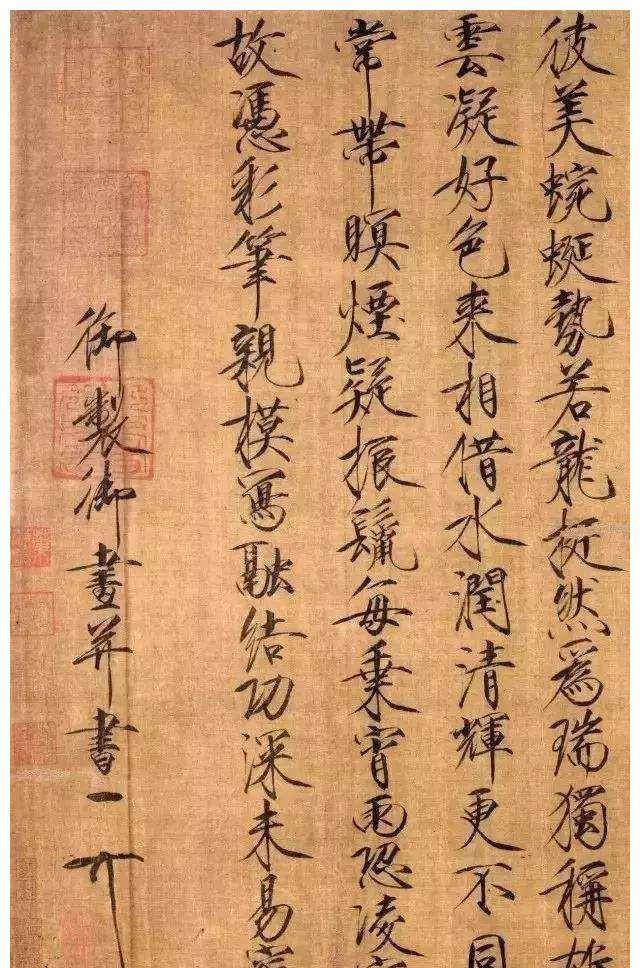 彼美蜿蜒勢若龍挺然爲瑞獨稱
雲凝好色来相借水潤清輝更不同
常帶暝煙疑振鬣每乘宵雨恐凌
故憑彩筆親模寫融結功深未易
御製御畫并書